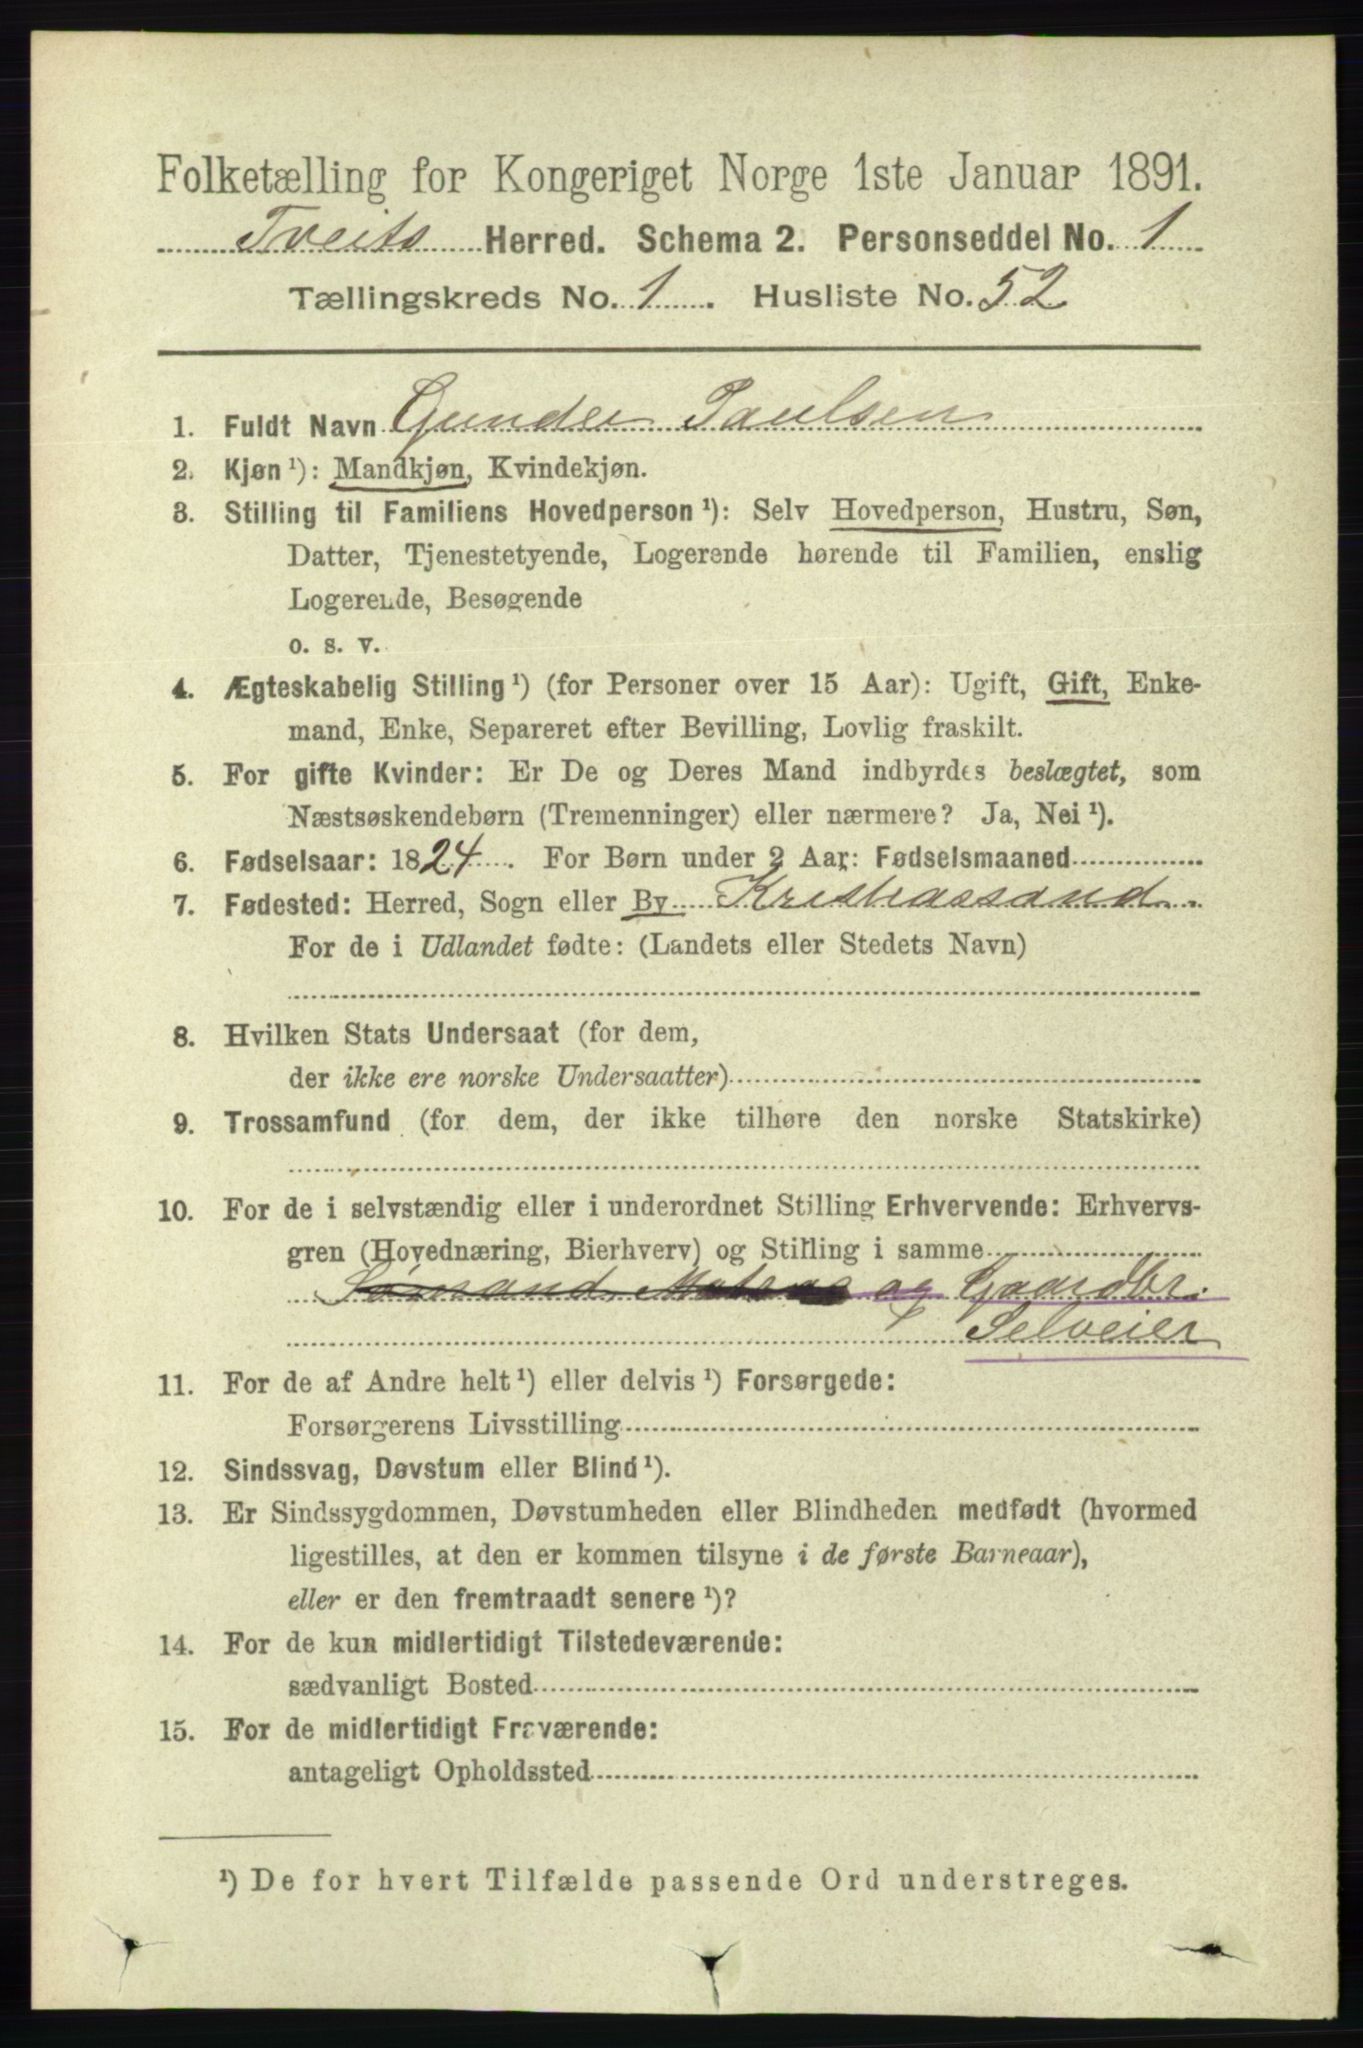 Folketælling for Kongeriget Norge 1ste Januar 1891.
Tveits Herred. Schema 2. Personseddel No. 1
Tællingskreds No. 1. Husliste No. 52
1. Fuldt Navn Gunder Paulsen
2. Kjøn ¹): Mandkjøn, Kvindekjøn.
3. Stilling til Familiens Hovedperson ¹): Selv Hovedperson, Hustru, Søn,
Datter, Tjenestetyende, Logerende hørende til Familien, enslig
Logerende, Besøgende
o. s. v.
4. Ægteskabelig Stilling ¹) (for Personer over 15 Aar): Ugift, Gift, Enke-
mand, Enke, Separeret efter Bevilling, Lovlig fraskilt.
5. For gifte Kvinder: Er De og Deres Mand indbyrdes beslægtet, som
Næstsøskendebørn (Tremenninger) eller nærmere? Ja, Nei ¹).
6. Fødselsaar: 1824. For Børn under 2 Aar: Fødselsmaaned
7. Fødested: Herred, Sogn eller By Kristiassand.
For de i Udlandet fødte: (Landets eller Stedets Navn)
8. Hvilken Stats Undersaat (for dem,
der ikke ere norske Undersaatter)
9. Trossamfund (for dem, der ikke tilhøre den norske Statskirke)
10. For de i selvstændig eller i underordnet Stilling Erhvervende: Erhvervs-
gren (Hovednæring, Bierhverv) og Stilling i samme
Sømand og Gaardbr.
Selveier
11. For de af Andre helt ¹) eller delvis ¹) Forsørgede:
Forsørgerens Livsstilling
12. Sindssvag, Døvstum eller Blind ¹).
13. Er Sindssygdommen, Døvstumheden eller Blindheden medfødt (hvormed
ligestilles, at den er kommen tilsyne i de første Barneaar),
eller er den fremtraadt senere ¹)?
14. For de kun midlertidigt Tilstedeværende:
sædvanligt Bosted
15. For de midlertidigt Fraværende:
antageligt Opholdssted
¹) De for hvert Tilfælde passende Ord understreges.